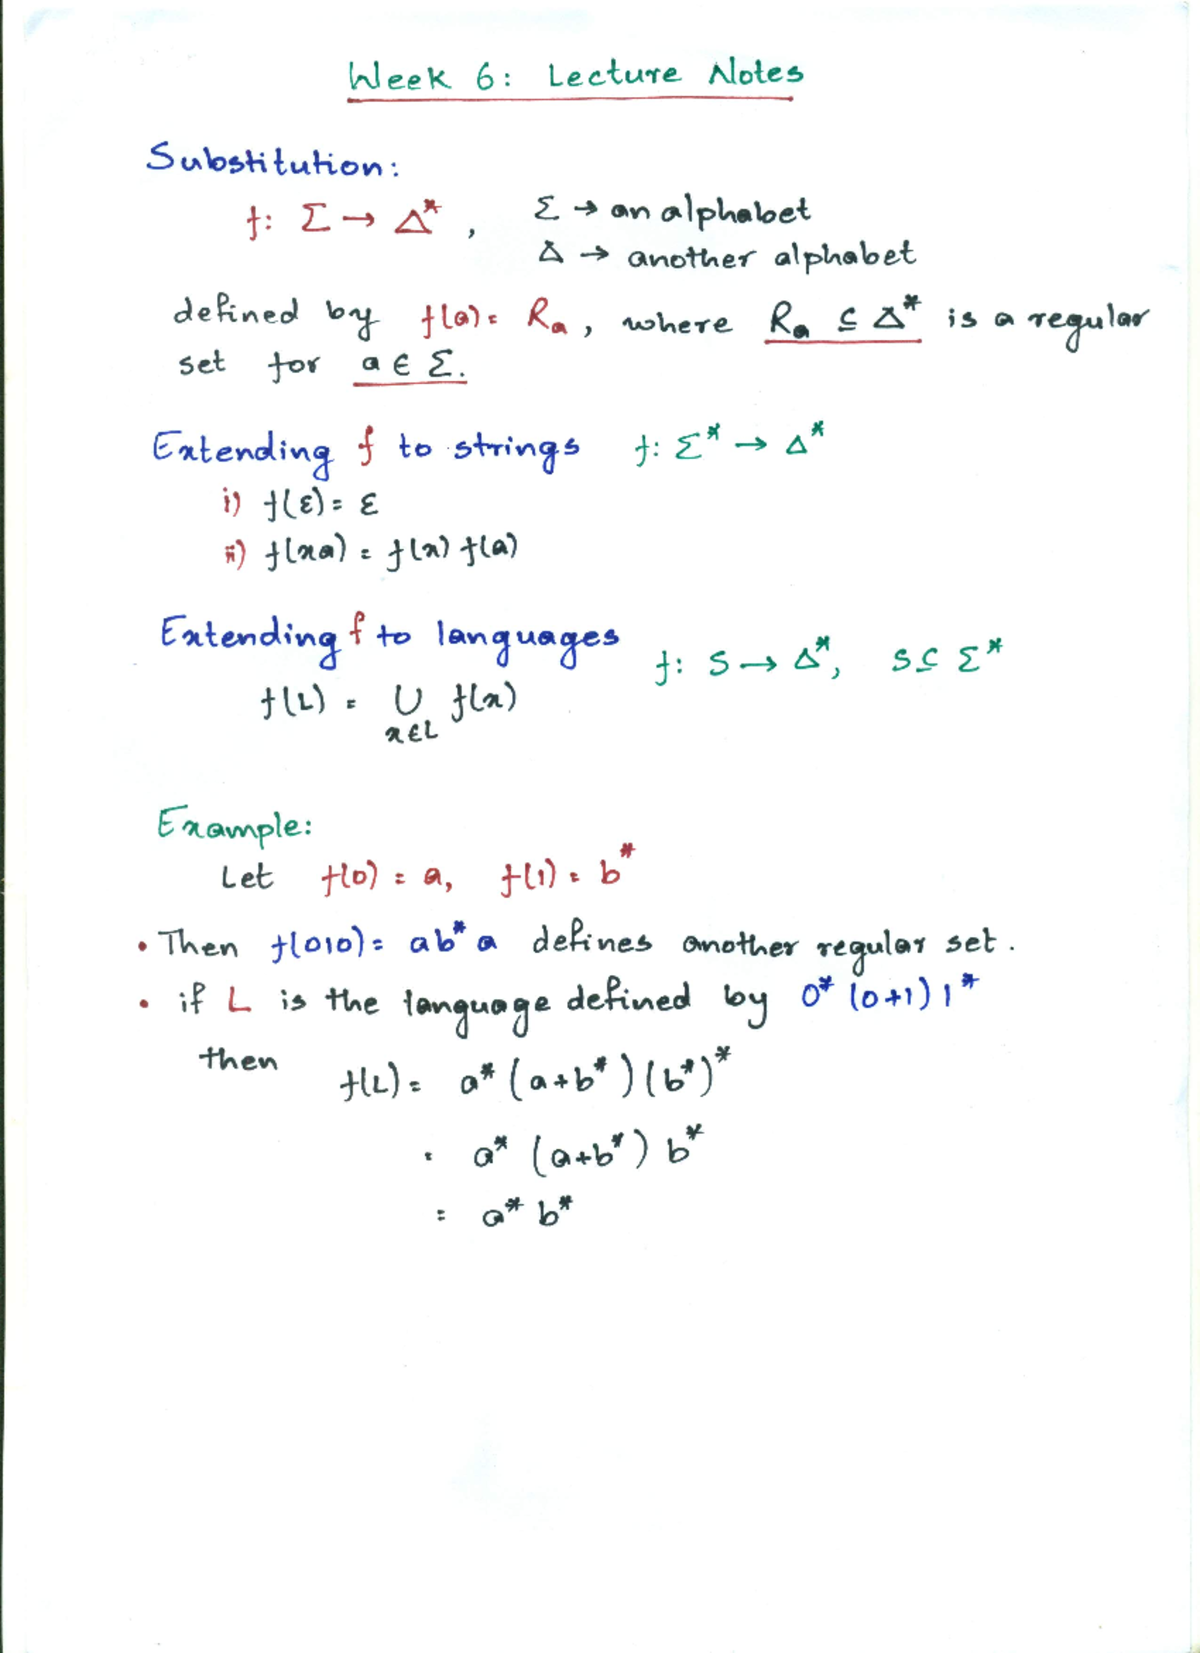 Week 6: Lecture Notes
Substitution:
f: Σ → Δ*, Σ → an alphabet
Δ → another alphabet
defined by f(a) = Ra, where Ra ⊆ Δ* is a regular
set for a ∈ Σ.
Extending f to strings f: Σ* → Δ*
i) f(ε) = ε
ii) f(xa) = f(x) f(a)
Extending f to languages f: S → Δ*, S ⊆ Σ*
f(L) = ∪ f(x)
x∈L
Example:
Let f(0) = a, f(1) = b*
• Then f(010) = ab*a defines another regular set.
• if L is the language defined by 0* (0+1) 1*
then f(L) = a* (a+b*) (b*)*
= a* (a+b*) b*
= a* b*